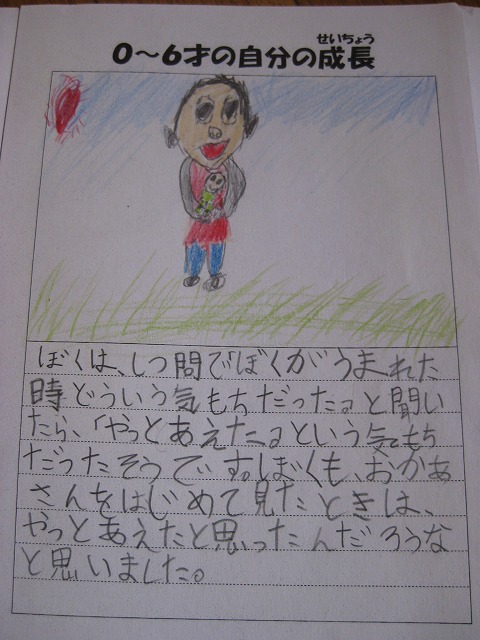 せいちょう
0〜6才の自分の成長
ぼくは、しつ問でぼくがうまれた
時どういう気もちだった。と聞い
たら、「やっとあえた。」という気もち
だったそうです。ぼくも、おかあ
さんをはじめて見たときは、
やっとあえたと思ったんだろうな
と思いました。